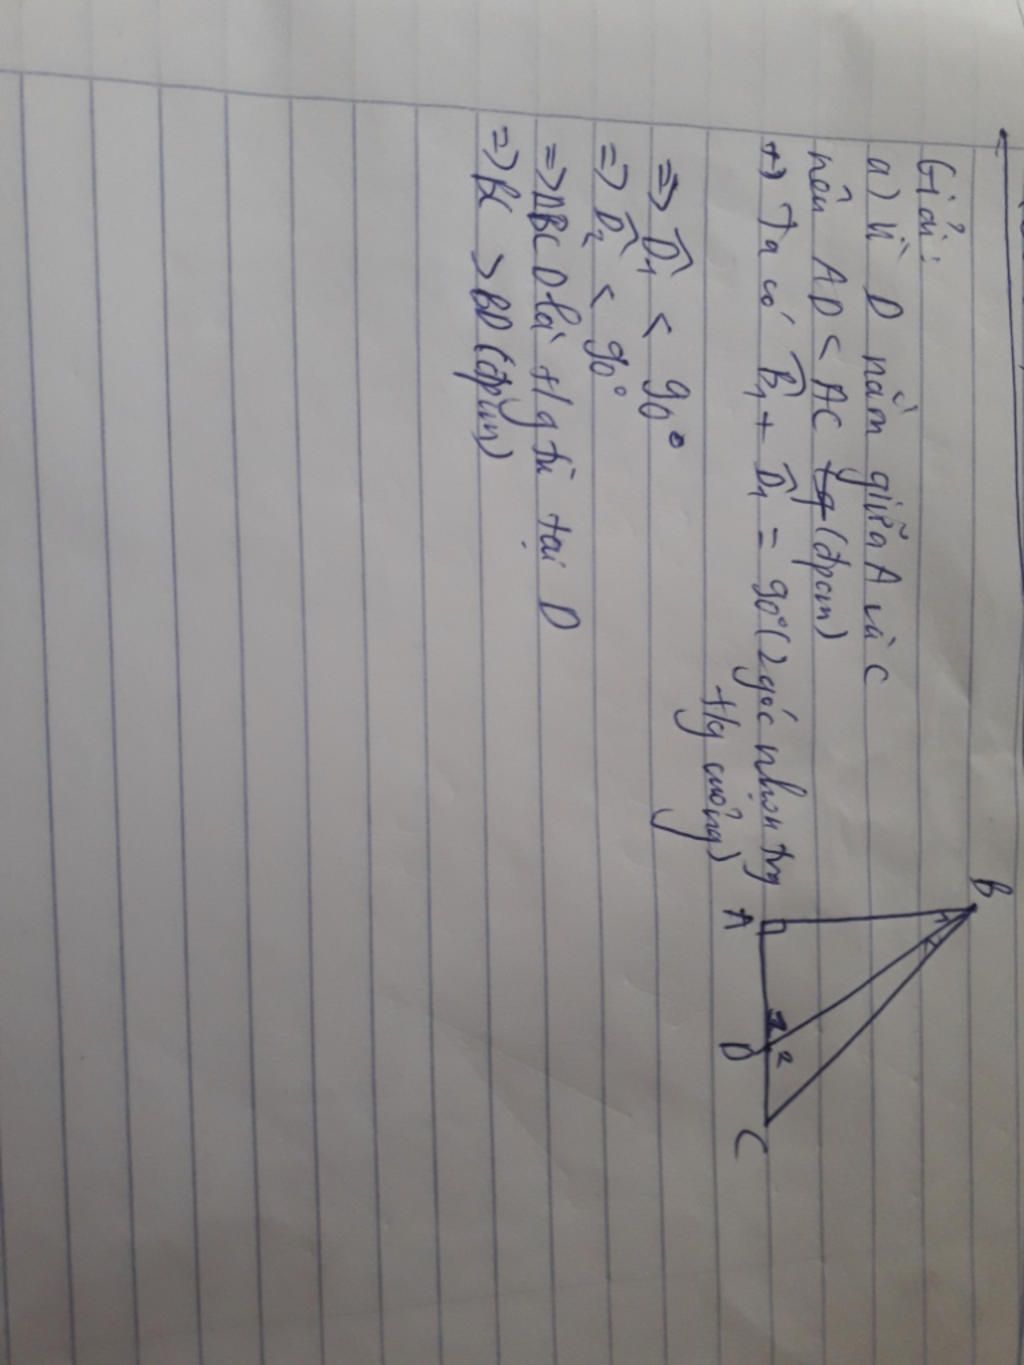 Giải:
a) Vì D nằm giữa A và C
nên AD < AC (đpcm)
+) Ta có B̂₁ + D̂₁ = 90° (2 góc nhọn trg
t/g vuông)
=> D̂₁ < 90°
=> D̂₂ < 90°
=> ΔBCD là t/g tù tại D
=> BC > BD (đpcm)
B
1
2
A
1
2
D
C